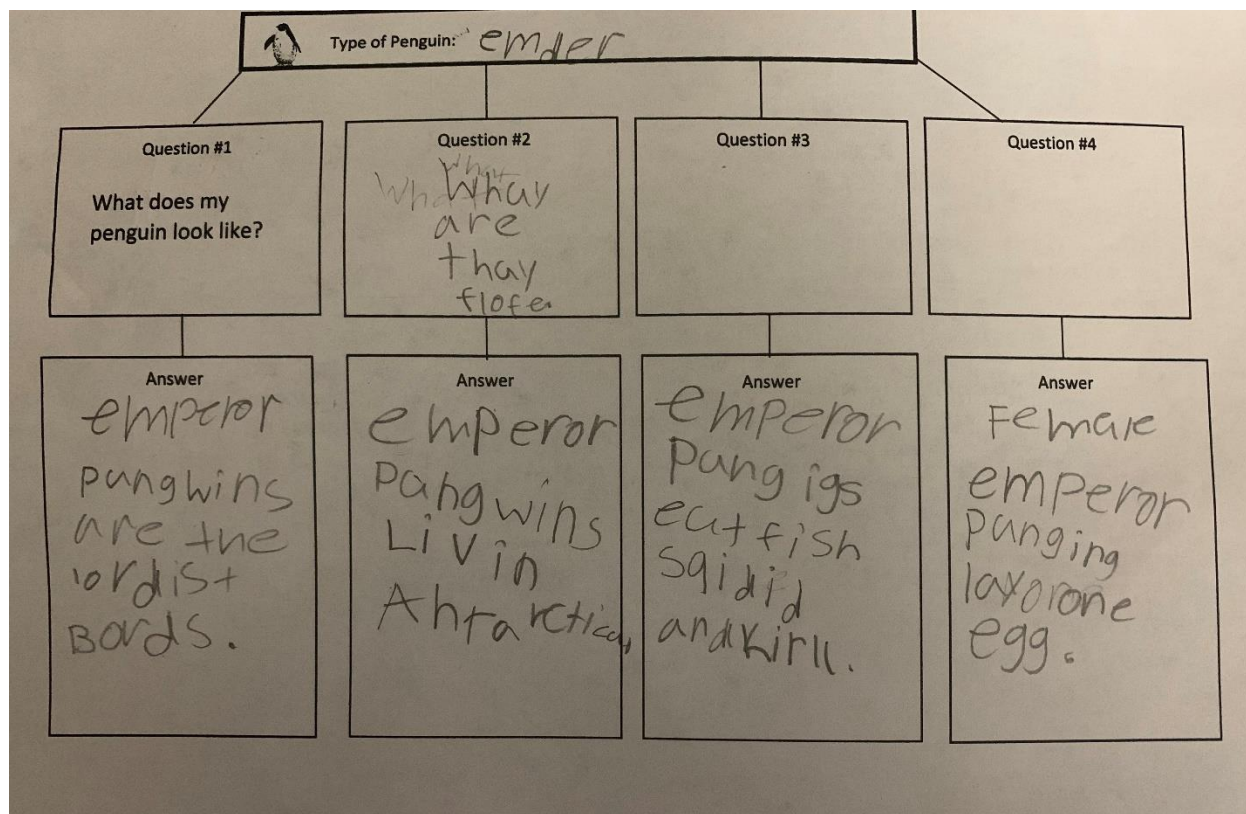 Type of Penguin: emder
Question #1
What does my
penguin look like?
Question #2
What
Whay
are
thay
flofe.
Question #3
Question #4
Answer
emperor
pungwins
are the
lordist
Bords.
Answer
emperor
Pangwins
Livin
Antarctica,
Answer
emperor
Pung igs
eat fish
sqidid
and kirll.
Answer
Female
emperor
punging
layorone
egg.